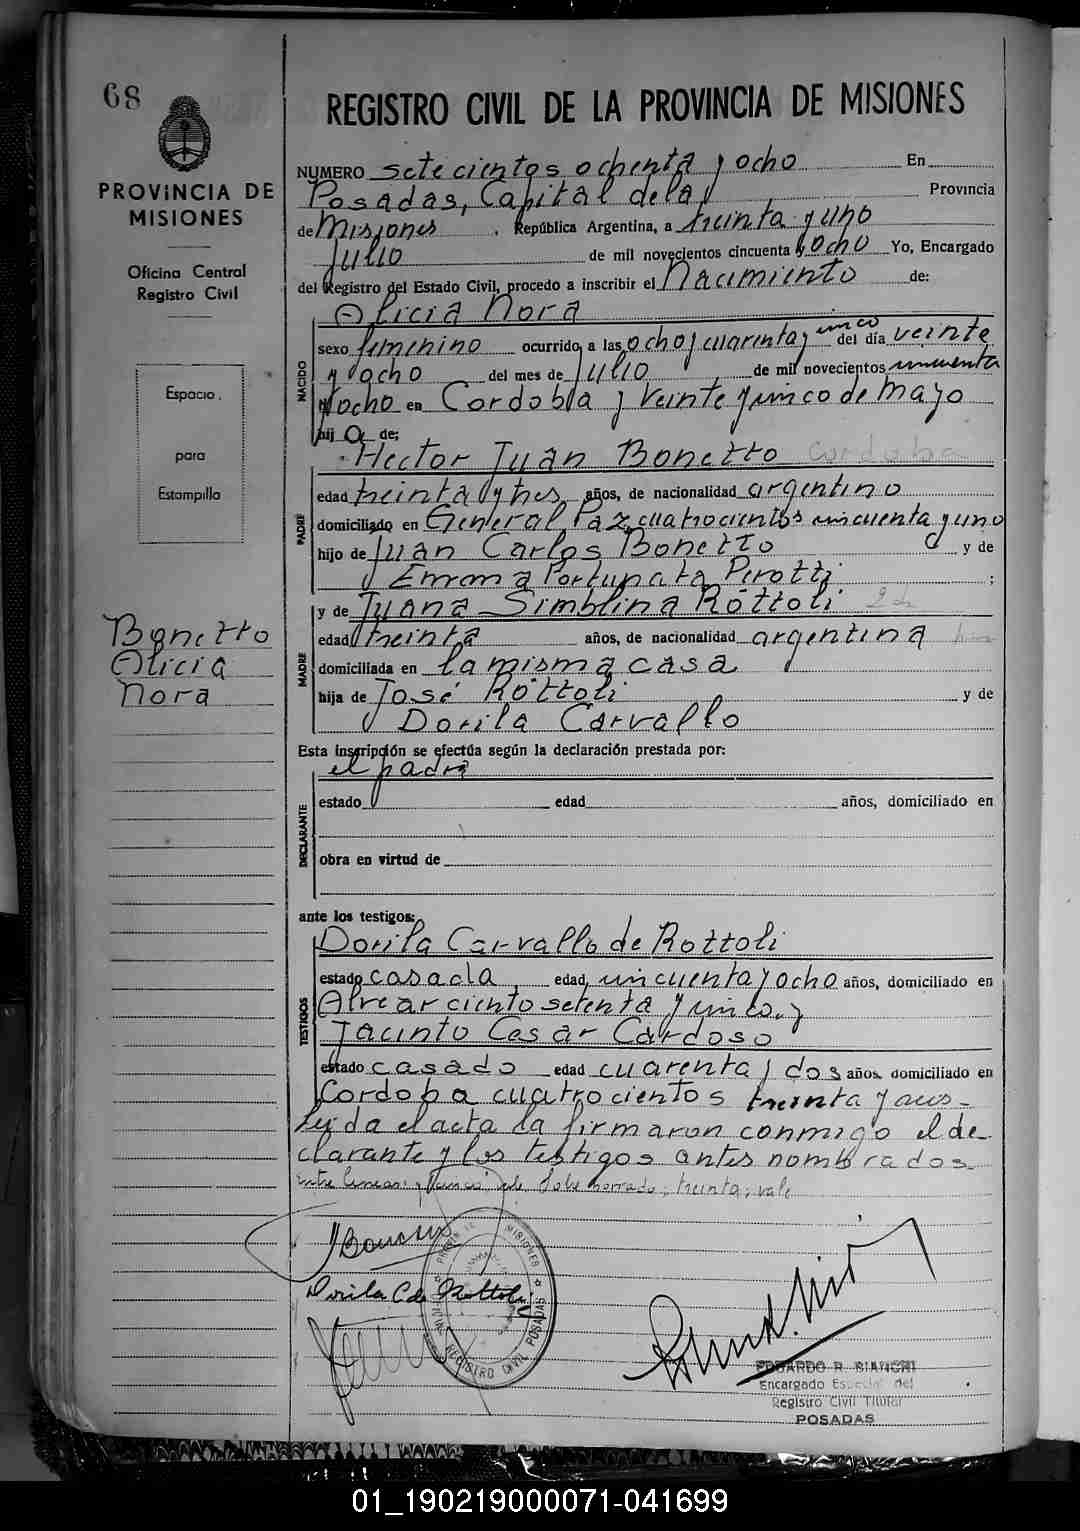 68
PROVINCIA DE
MISIONES
Oficina Central
Registro Civil
Espacio
para
Estampilla
Bonetto
Alicia
Nora
REGISTRO CIVIL DE LA PROVINCIA DE MISIONES
NUMERO setecientos ochenta y ocho En
Posadas, Capital de la Provincia
de Misiones, República Argentina, a treinta y uno
Julio de mil novecientos cincuenta y ocho Yo, Encargado
del Registro del Estado Civil, procedo a inscribir el Nacimiento de:
Alicia Nora
NACIDO
sexo femenino ocurrido a las ocho y cuarenta y cinco del día veinte
y ocho del mes de Julio de mil novecientos cincuenta
y ocho en Cordobla y Veinte y cinco de Mayo
hija de;
Hector Juan Bonetto Cordoba
PADRE
edad treinta y tres años, de nacionalidad argentino
domiciliado en General Paz, cuatrocientos cincuenta y uno
hijo de Juan Carlos Bonetto y de
Emma Fortunata Perotti ;
y de Juana Simblina Róttoli
MADRE
edad treinta años, de nacionalidad argentina
domiciliada en la misma casa
hija de José Róttoli y de
Dorila Carvallo
Esta inscripción se efectúa según la declaración prestada por:
el padre
DECLARANTE
estado edad años, domiciliado en
obra en virtud de
ante los testigos:
Dorila Carvallo de Rottoli
TESTIGOS
estado casada edad cincuenta y ocho años, domiciliado en
Alvear ciento setenta y cinco. y
Jacinto Cesar Cardoso
estado casado edad cuarenta y dos años, domiciliado en
Cordoba cuatrocientos treinta y dos-
Leida el acta la firmaron conmigo el de-
clarante y los testigos antes nombrados
entre lineas: y cinco: vale Sobre borrado: treinta: vale
Dorila C de Rottoli
REGISTRO CIVIL POSADAS
MISIONES
EDUARDO R. BIANCHI
Encargado Especial del
Registro Civil Titular
POSADAS
01_190219000071-041699